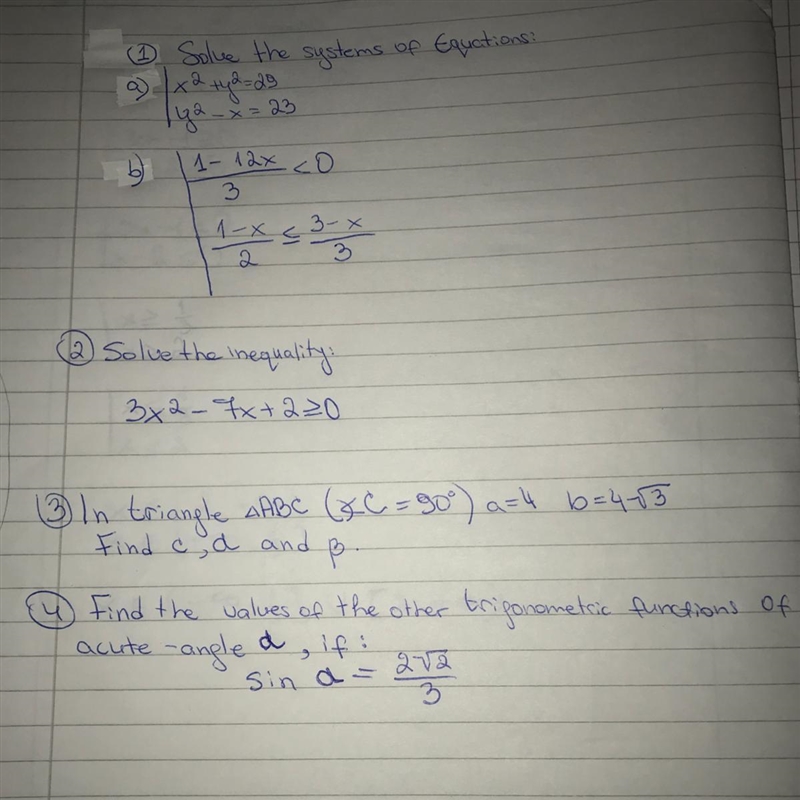 ① Solve the systems of Equations:
a) | x² + y² = 29
| y² - x = 23
b) | (1 - 12x)/3 < 0
| (1 - x)/2 ≤ (3 - x)/3
② Solve the inequality:
3x² - 7x + 2 ≥ 0
③ In triangle △ABC (∢C = 90°) a=4 b=4√3
Find c, α and β.
④ Find the values of the other trigonometric functions of
acute-angle α, if:
sin α = 2√2/3